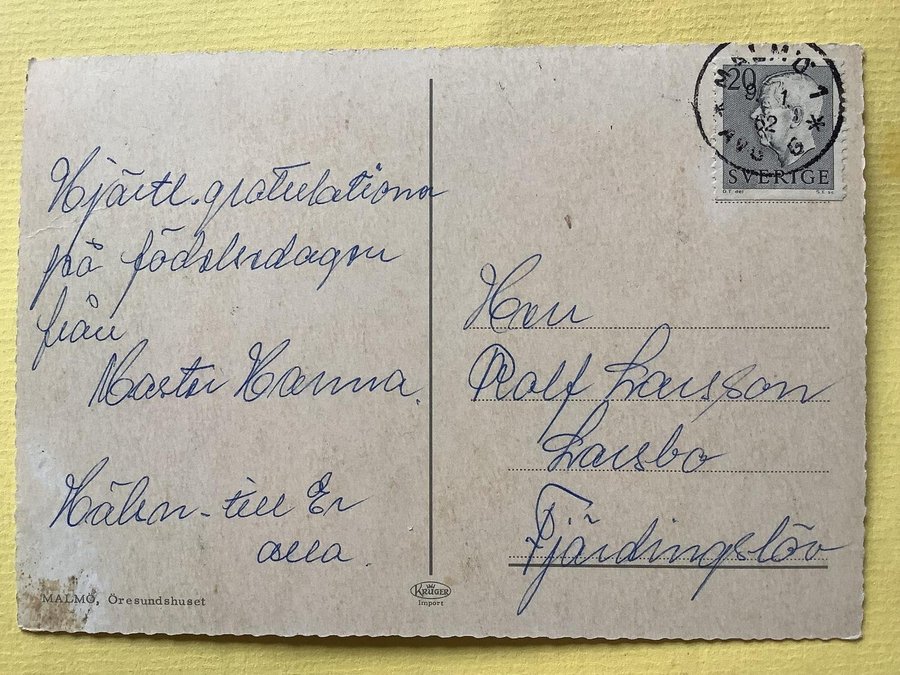 Hjärtl. gratulationer
på födelsedagen
från
Moster Hanna.
Hälsn. till Er
alla.
MALMÖ, Öresundshuset
KRÜGER
Import
MALMÖ 1
9 1
62
AVG G
20
SVERIGE
Herr
Rolf Larsson
Larsbo
Fjärdingslöv